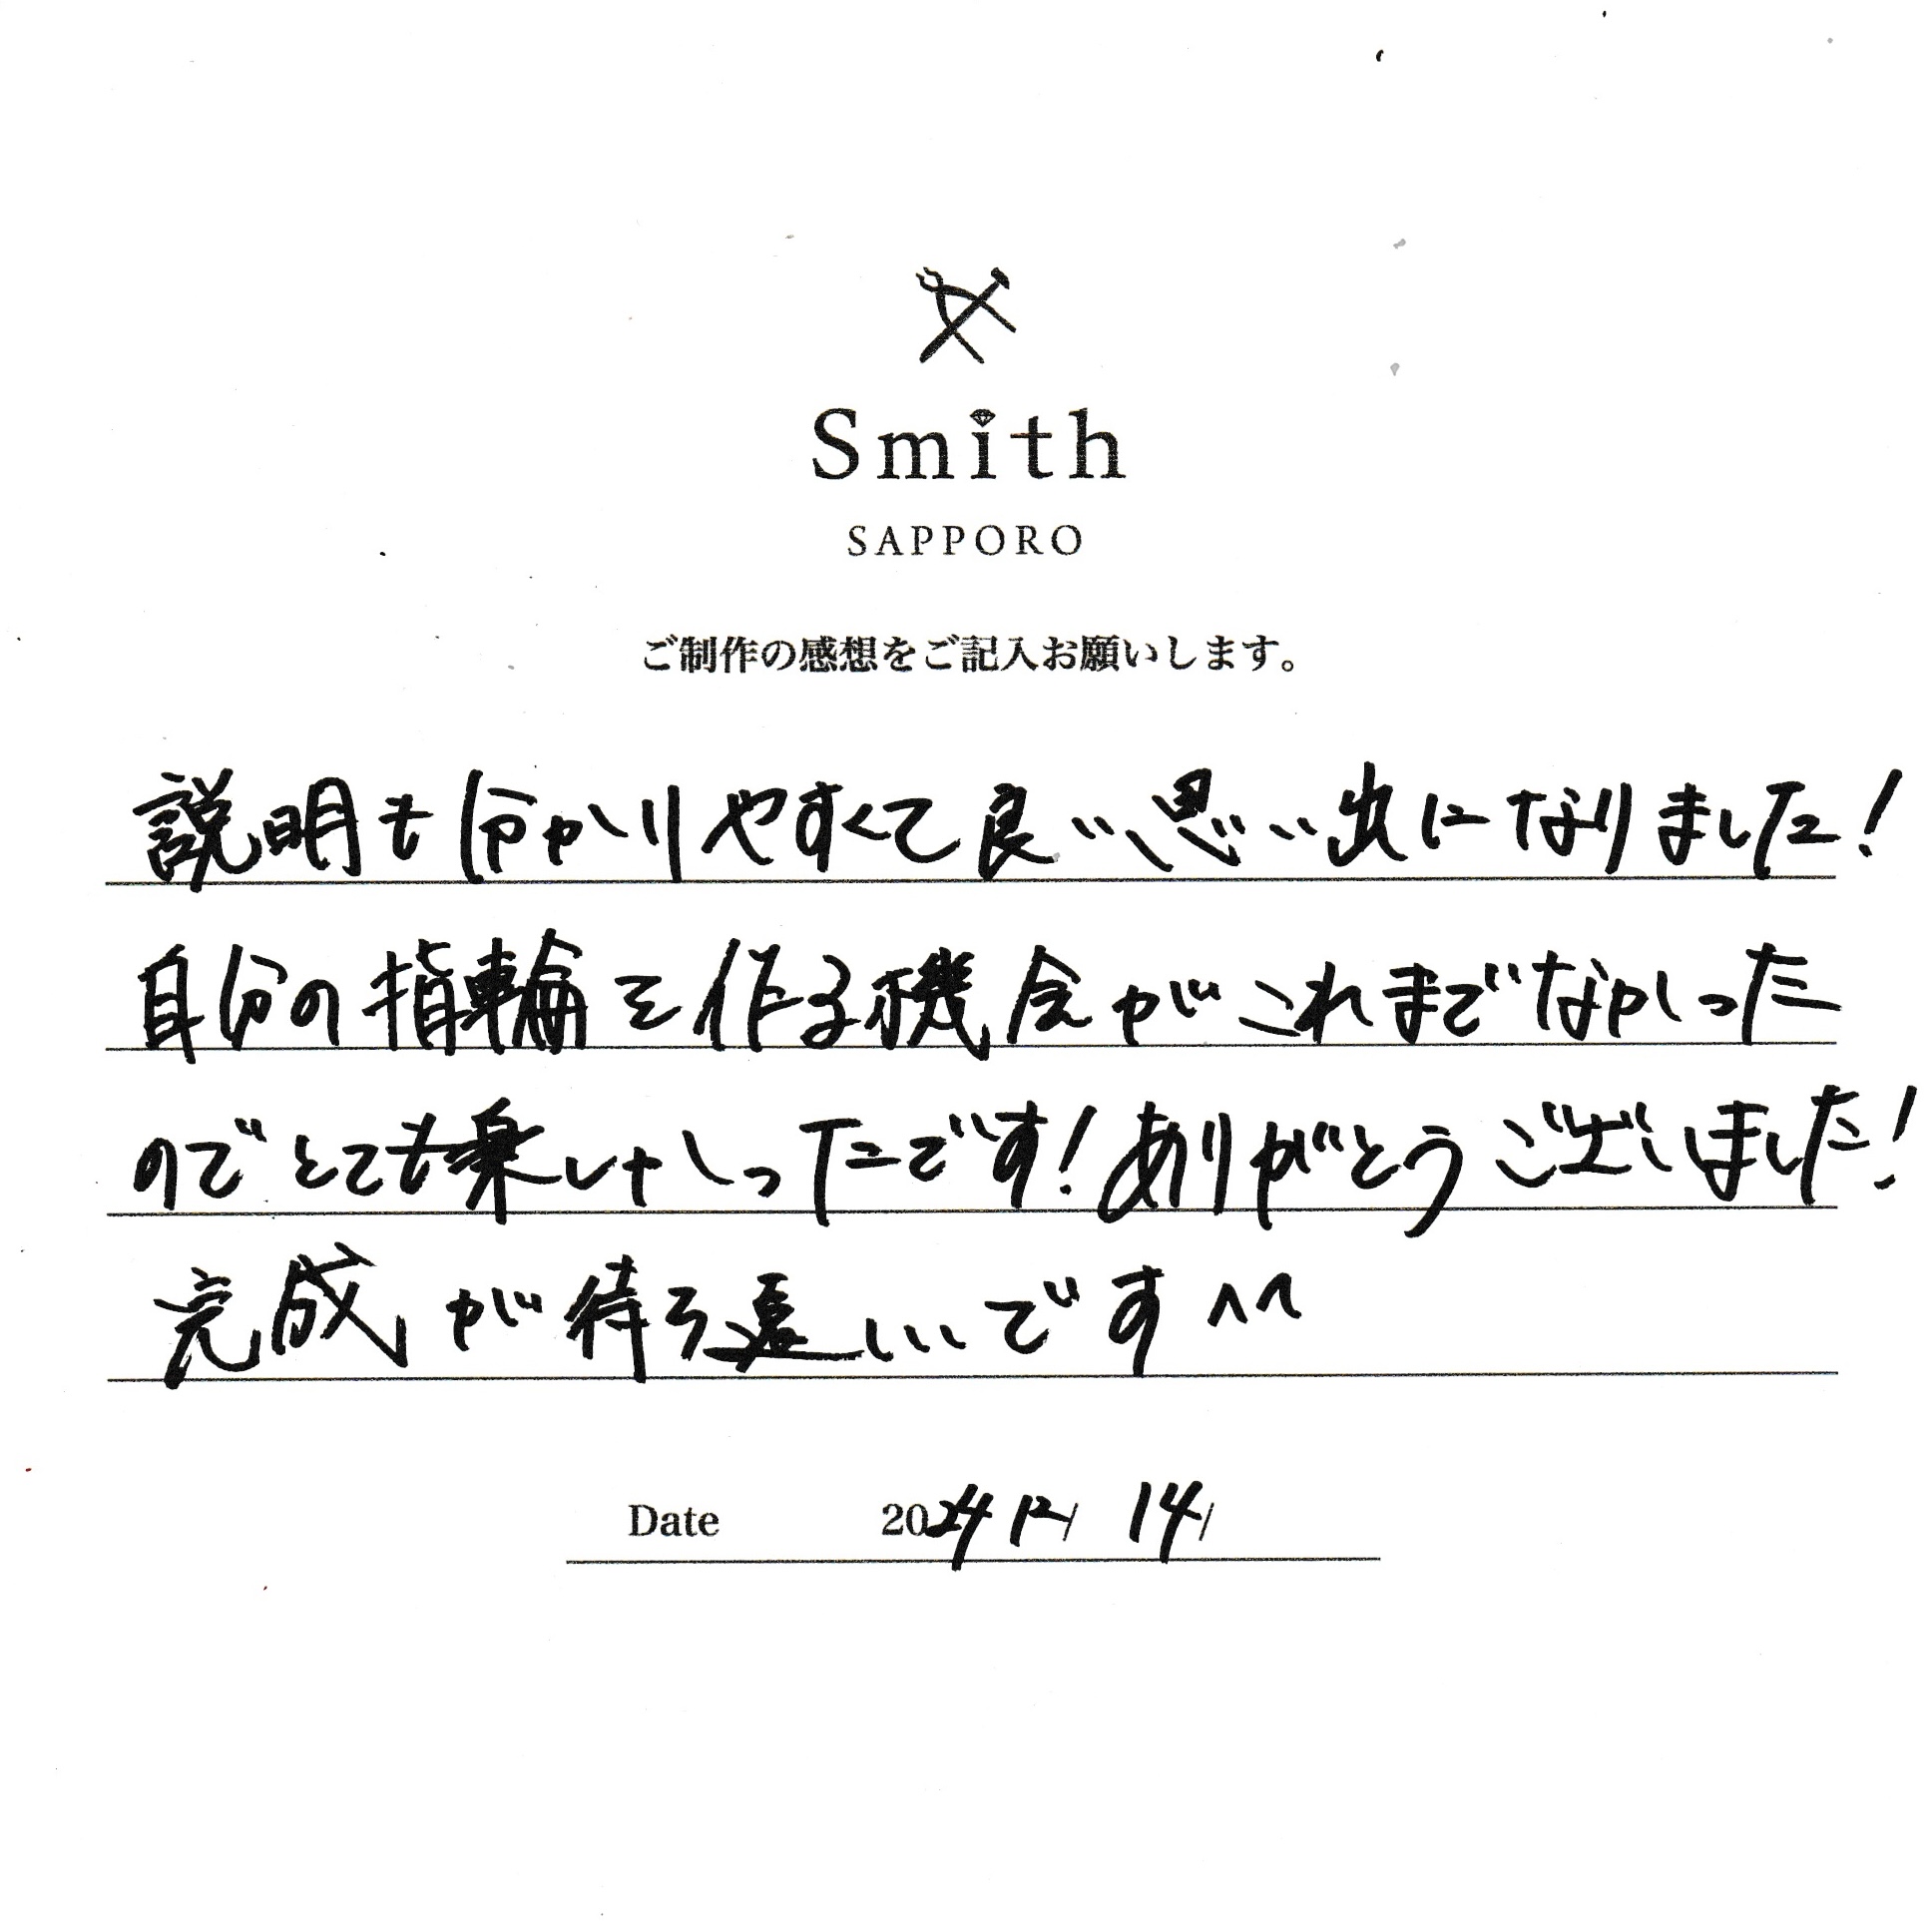 Smith
SAPPORO
ご制作の感想をご記入お願いします。
説明も分かりやすくて良い思い出になりました!
自分の指輪を作る機会がこれまでなかった
のでとても楽しかったです!ありがとうございました!
完成が待ち遠しいです^^
Date 2024 12/ 14/